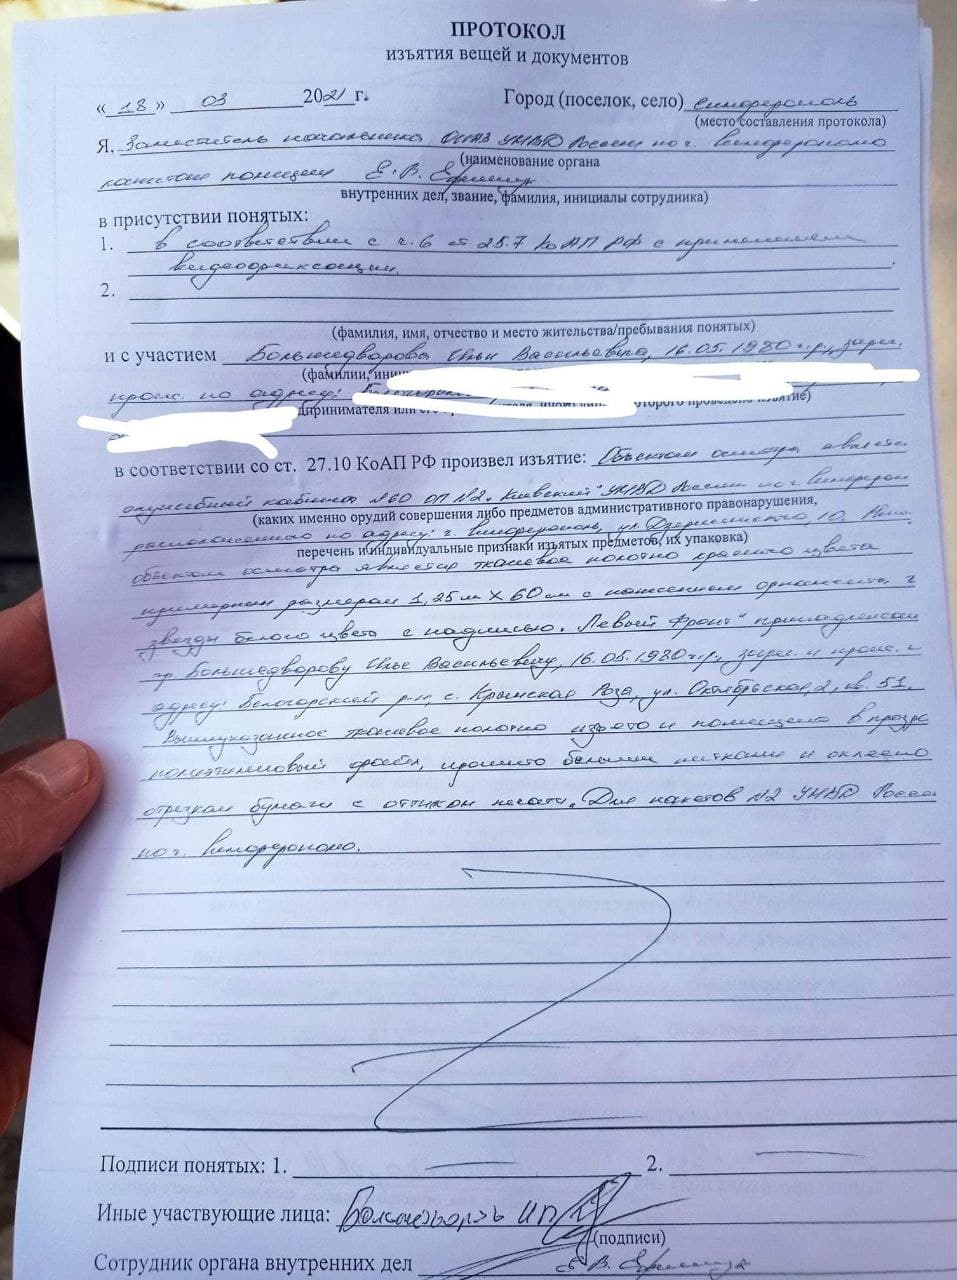 ПРОТОКОЛ
изъятия вещей и документов
« 18 » 03 2021 г. Город (поселок, село) Симферополь
(место составления протокола)
Я, Заместитель начальника УМВД России по г. Симферополю
(наименование органа
капитан полиции Е. В.
внутренних дел, звание, фамилия, инициалы сотрудника)
в присутствии понятых:
1. в соответствии с ч. 6 ст 25.7 КоАП РФ с применением
видеофиксации.
2.
(фамилия, имя, отчество и место жительства/пребывания понятых)
и с участием Большедворова Ильи Васильевича, 16.05.1980 г.р., зарег.
(фамилии, иниц
прож. по адресу:
дпринимателя или его которого проведено изъятие)
в соответствии со ст. 27.10 КоАП РФ произвел изъятие: Объектом осмотра является
служебный кабинет №60 ОП №2 "Киевский" УМВД России по г. Симферополю
(каких именно орудий совершения либо предметов административного правонарушения,
расположенного по адресу: г. Симферополь, ул. Дзержинского, 10.
перечень и индивидуальные признаки изъятых предметов, их упаковка)
объектом осмотра является тканевое полотно красного цвета
примерным размером 1,25м X 60 см с нанесением орнамента
звезды белого цвета с надписью "Левый Фронт" принадлежащ
гр. Большедворову Илье Васильевичу, 16.05.1980 г.р., зарег. и прож.
адресу: Белогорский р-н, с. Крымская Роза, ул. Октябрьская, 2, кв. 51.
Вышеуказанное тканевое полотно изъято и помещено в прозр
полиэтиленовый файл, прошито белыми нитками и оклеено
отрезком бумаги с оттиском печати "Для пакетов №2 УМВД России
по г. Симферополю.
Подписи понятых: 1. 2.
Иные участвующие лица: Большедворов И.В.
(подписи)
Сотрудник органа внутренних дел Е. В.